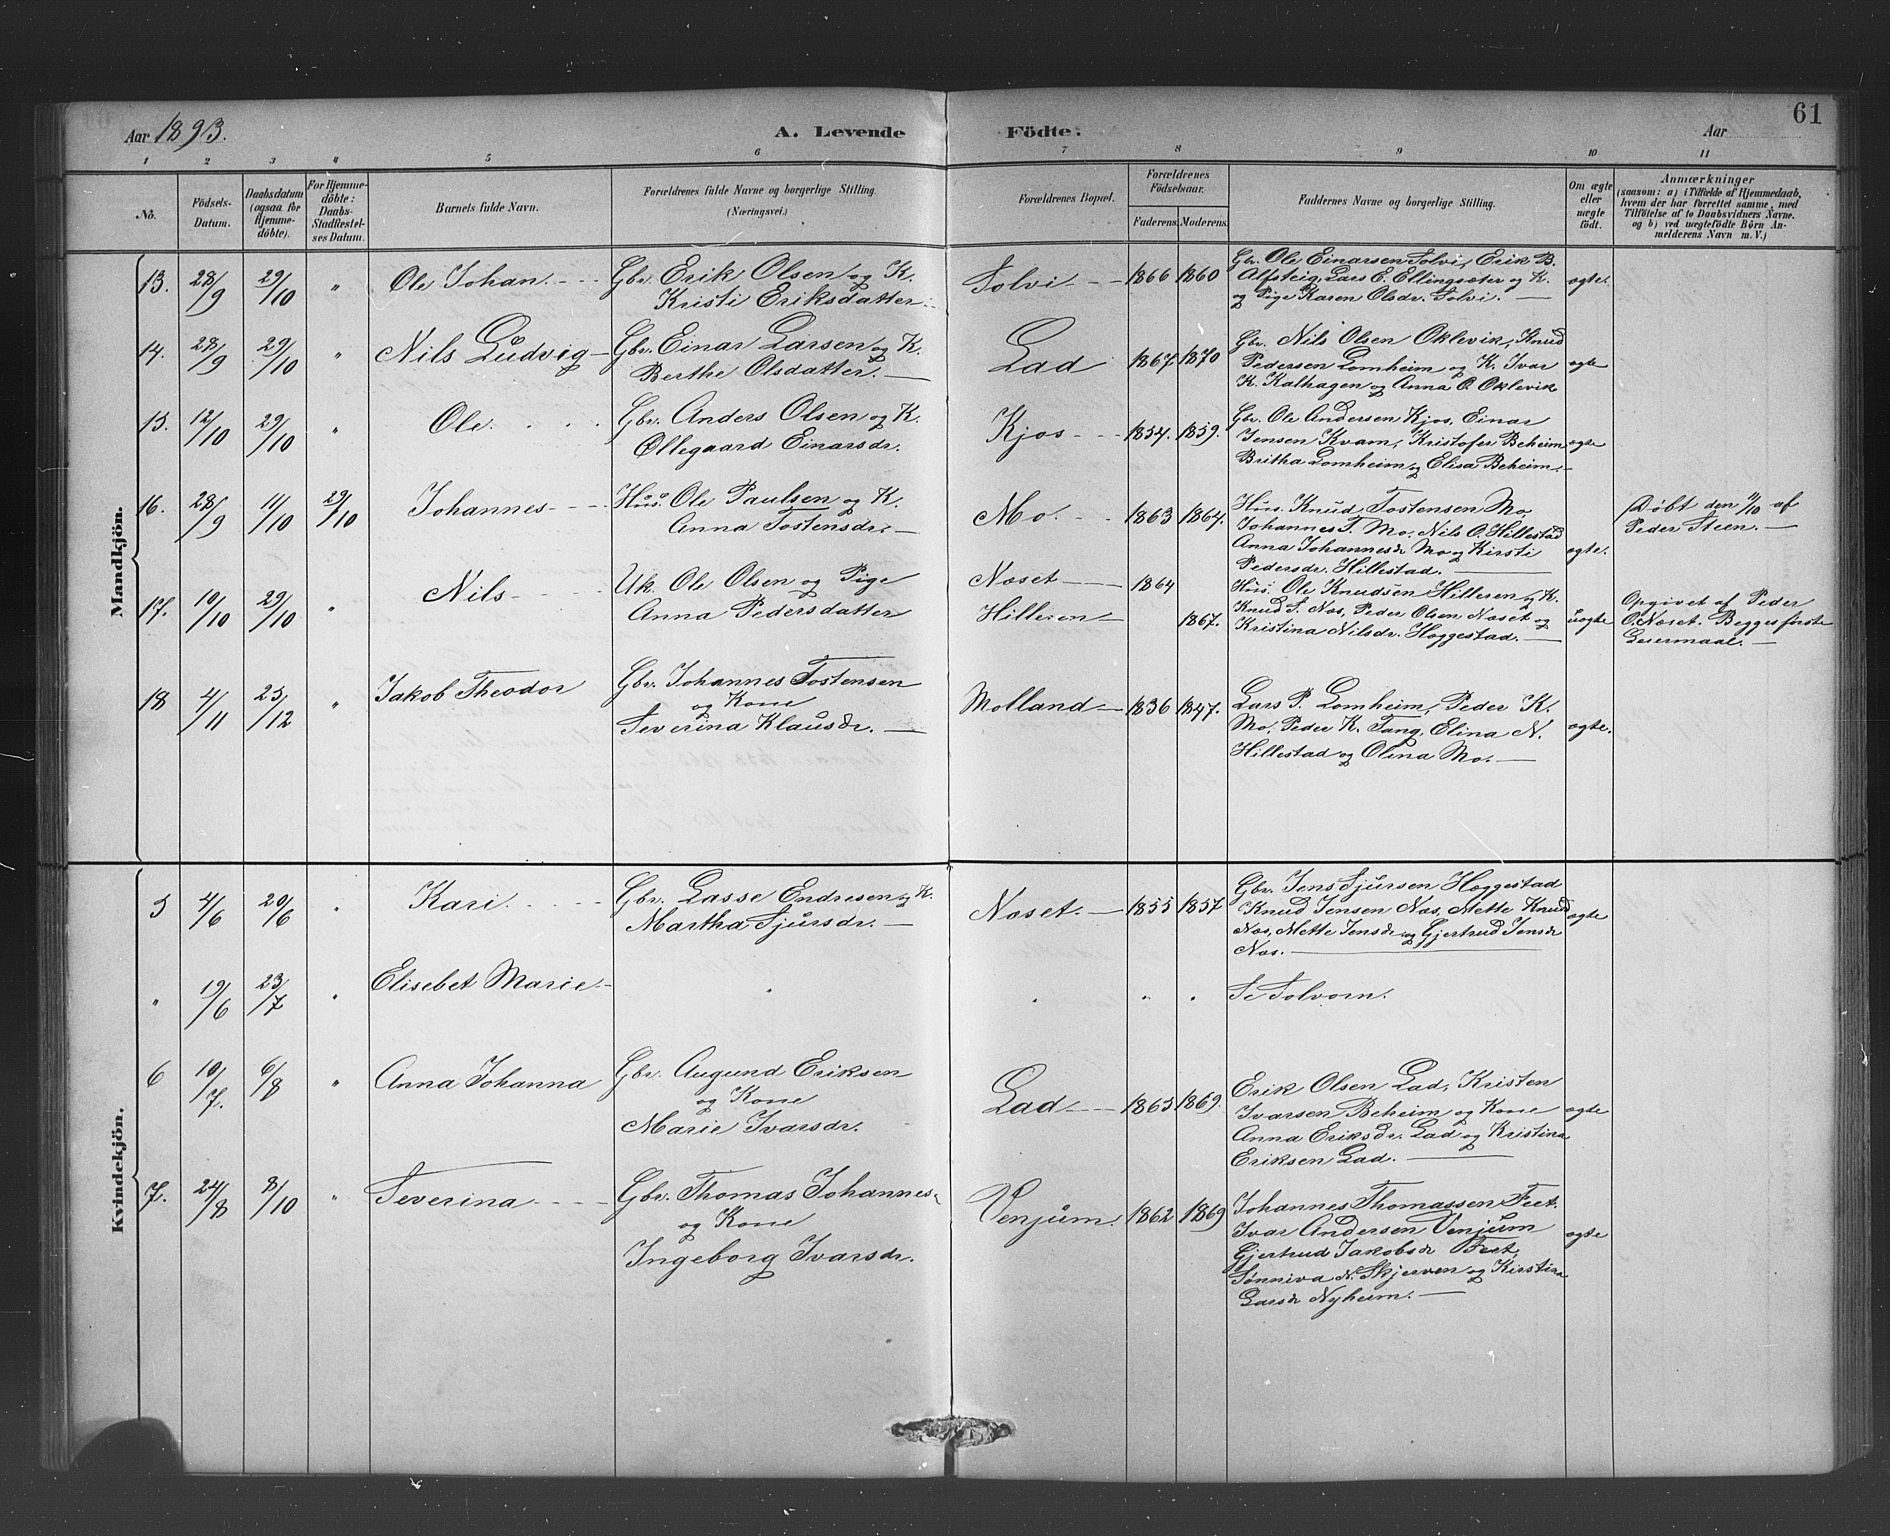 61
Aar 1893.
A. Levende Födte.
Aar
1 2 3 4 5 6 7 8 9 10 11
No.
Födsels-
Datum.
Daabsdatum
(ogsaa for
Hjemme-
döbte).
For Hjemme-
döbte:
Daabs-
Stadfæstel-
ses Datum.
Barnets fulde Navn.
Forældrenes fulde Navne og borgerlige Stilling.
(Næringsvei.)
Forældrenes Bopæl.
Forældrenes
Födselsaar.
Faderens.
Moderens.
Faddernes Navne og borgerlige Stilling.
Om ægte
eller
uægte
födt.
Anmærkninger
(saasom: a) i Tilfælde af Hjemmedaab,
hvem der har forrettet samme, med
Tilföielse af to Daabsvidners Navne.
og b) ved uægtefödte Börn An-
melderens Navn m. V.)
Mandkjön.
13. 28/9 29/10 " Ole Johan
Gbr. Erik Olsen og K.
Kristi Eriksdatter.
Solvi 1866 1860
Gbr. Ole Einarsen Solvi, Erik B.
Alfsteig, Lars E. Ellingsæter og K.
og Pige Karen Olsdr. Solvi.
ægte.
14. 28/9 29/10 " Nils Ludvig
Gbr. Einar Larsen og K.
Berthe Olsdatter.
Lad 1867 1870
Gbr. Nils Olsen Oklevik, Knud
Pedersen Lomheim og K. Ivar
K. Kalhagen og Anna O. Oklevik
ægte
15. 12/10 29/10 " Ole
Gbr. Anders Olsen og K.
Ollegaard Einarsdr.
Kjos 1854. 1859.
Gbr. Ole Andersen Kjos, Einar
Jensen Kvam, Kristofer Beheim
Britha Lomheim og Elisa Beheim.
ægte
16. 28/9 11/10 29/10 Johannes
Hus. Ole Paulsen og K.
Anna Tostensdr.
Mo. 1863 1864.
Hus. Knud Tostensen Mo
Johannes T. Mo, Nils O. Hillestad
Anna Johannesdr Mo og Kirsti
Pedersdr. Hillestad.
ægte.
Döbt den 11/10 af
Peder Steen.
17. 10/10 29/10 " Nils
Uk. Ole Olsen og Pige
Anna Pedersdatter
Næset 1864
Hilleren 1867.
Hus. Ole Knudsen Hilleren og K.
Knud S. Næs, Peder Olsen Næset og
Kristina Nilsdr. Høggestad.
uægte
Opgivet af Peder
O. Næset. Begges første
Leiermaal.
18 4/11 25/12 " Jakob Theodor
Gbr. Johannes Tostensen
og Kone
Severina Klausdr.
Molland 1836 1847.
Lars P. Lomheim, Peder K.
Mo, Peder K. Tang, Elina N.
Hillestad og Olina Mo.
ægte.
Kvindekjön.
5 4/6 20/6 " Kari
Gbr. Lasse Endresen og K.
Martha Sjursdr.
Næset. 1855 1857
Gbr. Jens Sjursen Høggestad
Knud Jensen Næs, Mette Knud
Næs, Mette Jensdr og Gjertrud Jensdr
Næs.
ægte
" 19/6 23/7 " Elisebet Marie
" " " "
Se Solvorn.
6 10/7. 6/8 " Anna Johanna
Gbr. Augund Eriksen
og Kone
Marie Ivarsdr.
Lad 1865 1869.
Erik Olsen Lad, Kristen
Ivarsen Beheim og Kone
Anna Eriksdr. Lad og Kristina
Eriksen Lad.
ægte
7. 24/8 8/10 " Severina
Gbr. Thomas Johannes-
og Kone
Ingeborg Ivarsdr.
Venjum. 1862 1869
Johannes Thomassen Feet.
Ivar Andersen Venjum
Gjertrud Jakobsdr Feet,
Sønniva N. Skjerven og Kirstina
Larsdr Nyheim.
ægte